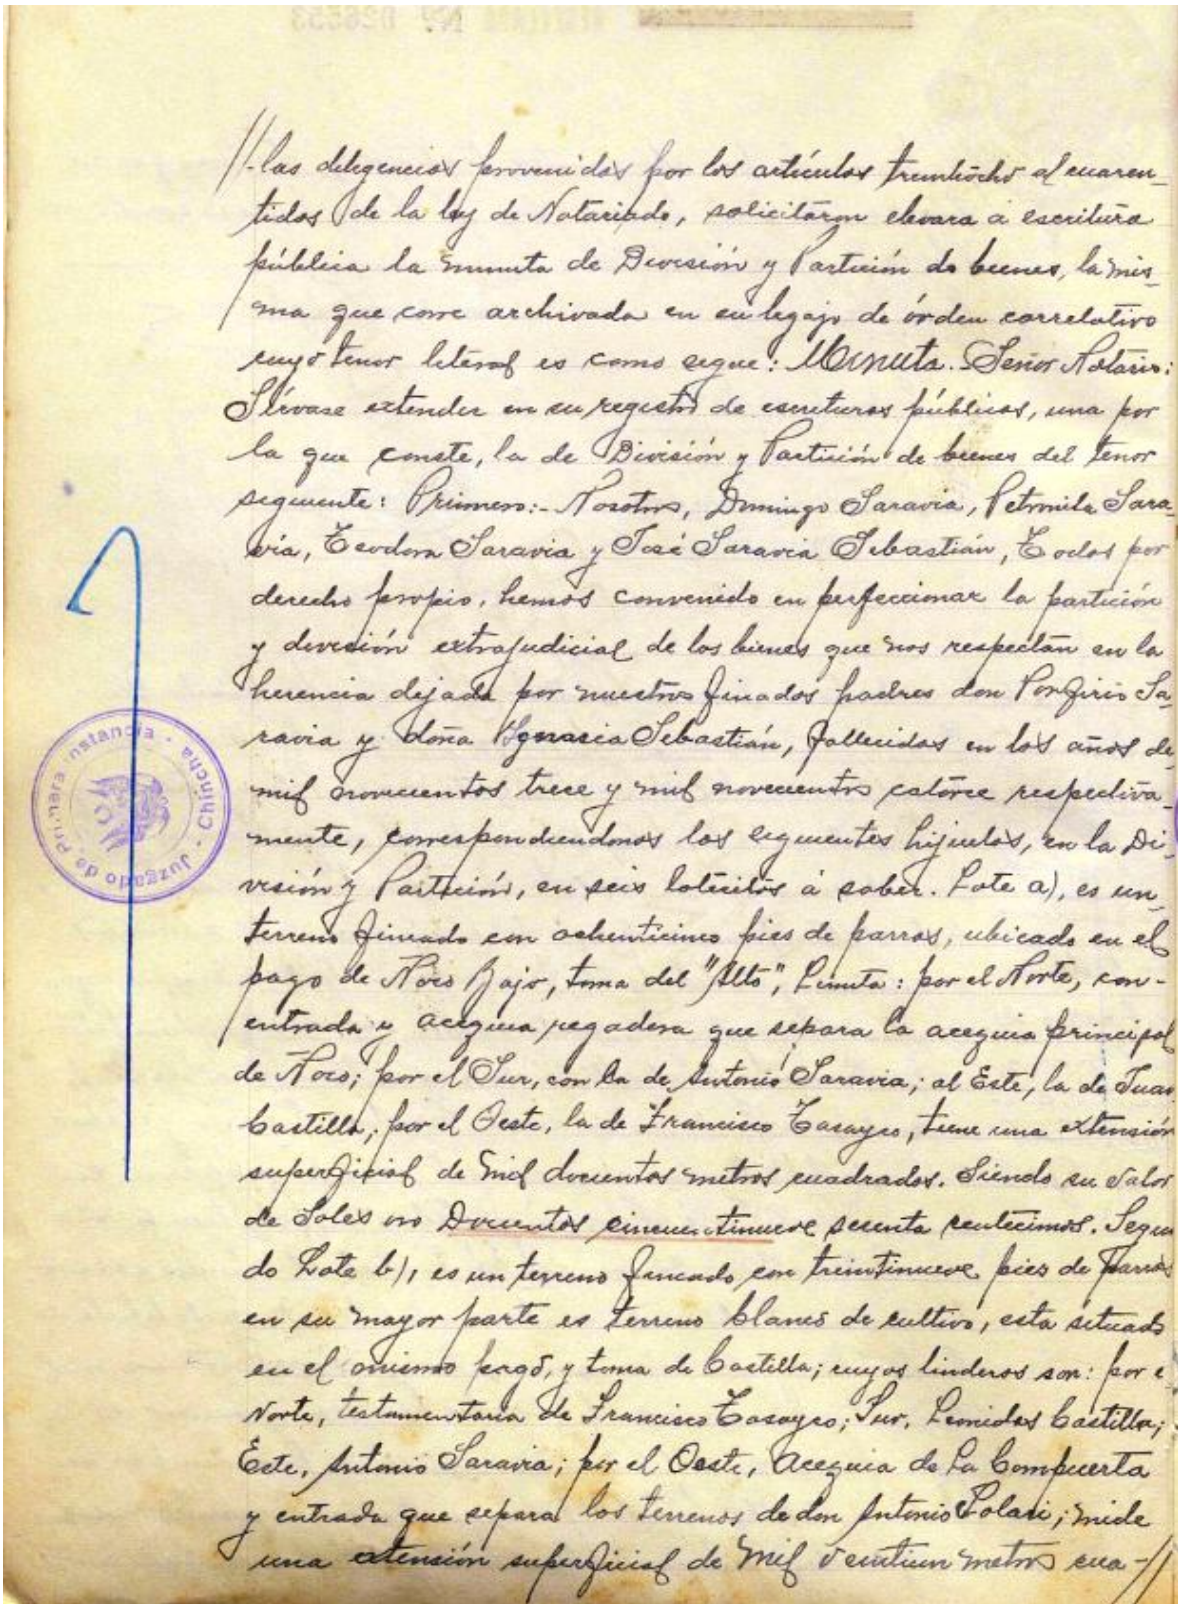 Nº 026653
//-las diligencias prevenidas por los artículos treintiocho al cuaren-
tidos de la ley de Notariado, solicitaron elevara á escritura
pública la minuta de División y Partición de bienes, la mis-
ma que corre archivada en su legajo de órden correlativo
cuyo tenor literal es como sigue: Minuta. Señor Notario:
Sírvase extender en su registro de escrituras públicas, una por
la que conste, la de División y Partición de bienes del tenor
siguiente: Primero:- Nosotros, Domingo Saravia, Petronila Sara-
via, Teodora Saravia y José Saravia Sebastián, Todos por
derecho propio, hemos convenido en perfeccionar la partición
y división extrajudicial de los bienes que nos respectan en la
herencia dejada por nuestros finados padres don Porfirio Sa-
ravia y doña Ignacia Sebastián, fallecidos en los años de
mil novecientos trece y mil novecientos catorce respectiva-
mente, correspondiendonos los siguientes hijuelas, en la Di-
visión y Partición, en seis lotecitos á saber. Lote a), es un
terreno fincado con ochenticinco pies de parras, ubicado en el
pago de Ñoco Bajo, toma del "Alto", Limita: por el Norte, con-
entrada y acequia regadora que separa la acequia principal
de Ñoco; por el Sur, con la de Antonio Saravia; al Este, la de Juan
Castilla; por el Oeste, la de Francisco Tasayco, tiene una extensión
superficial de mil docientos metros cuadrados. Siendo su valor
de Soles oro Docientos cincuentinueve sesenta centécimos. Segun
do Lote b), es un terreno fincado con treintinueve pies de parras
en su mayor parte es terreno blanco de cultivo, esta situado
en el mismo pago, y toma de Castilla; cuyos linderos son: por e
Norte, testamentaria de Francisco Tasayco; Sur, Leonidas Castilla;
Este, Antonio Saravia; por el Oeste, Acequia de La Compuerta
y entrada que separa los terrenos de don Antonio Solari; mide
una extensión superficial de mil veintiun metros cua-//
Juzgado de Primera Instancia - Chincha -